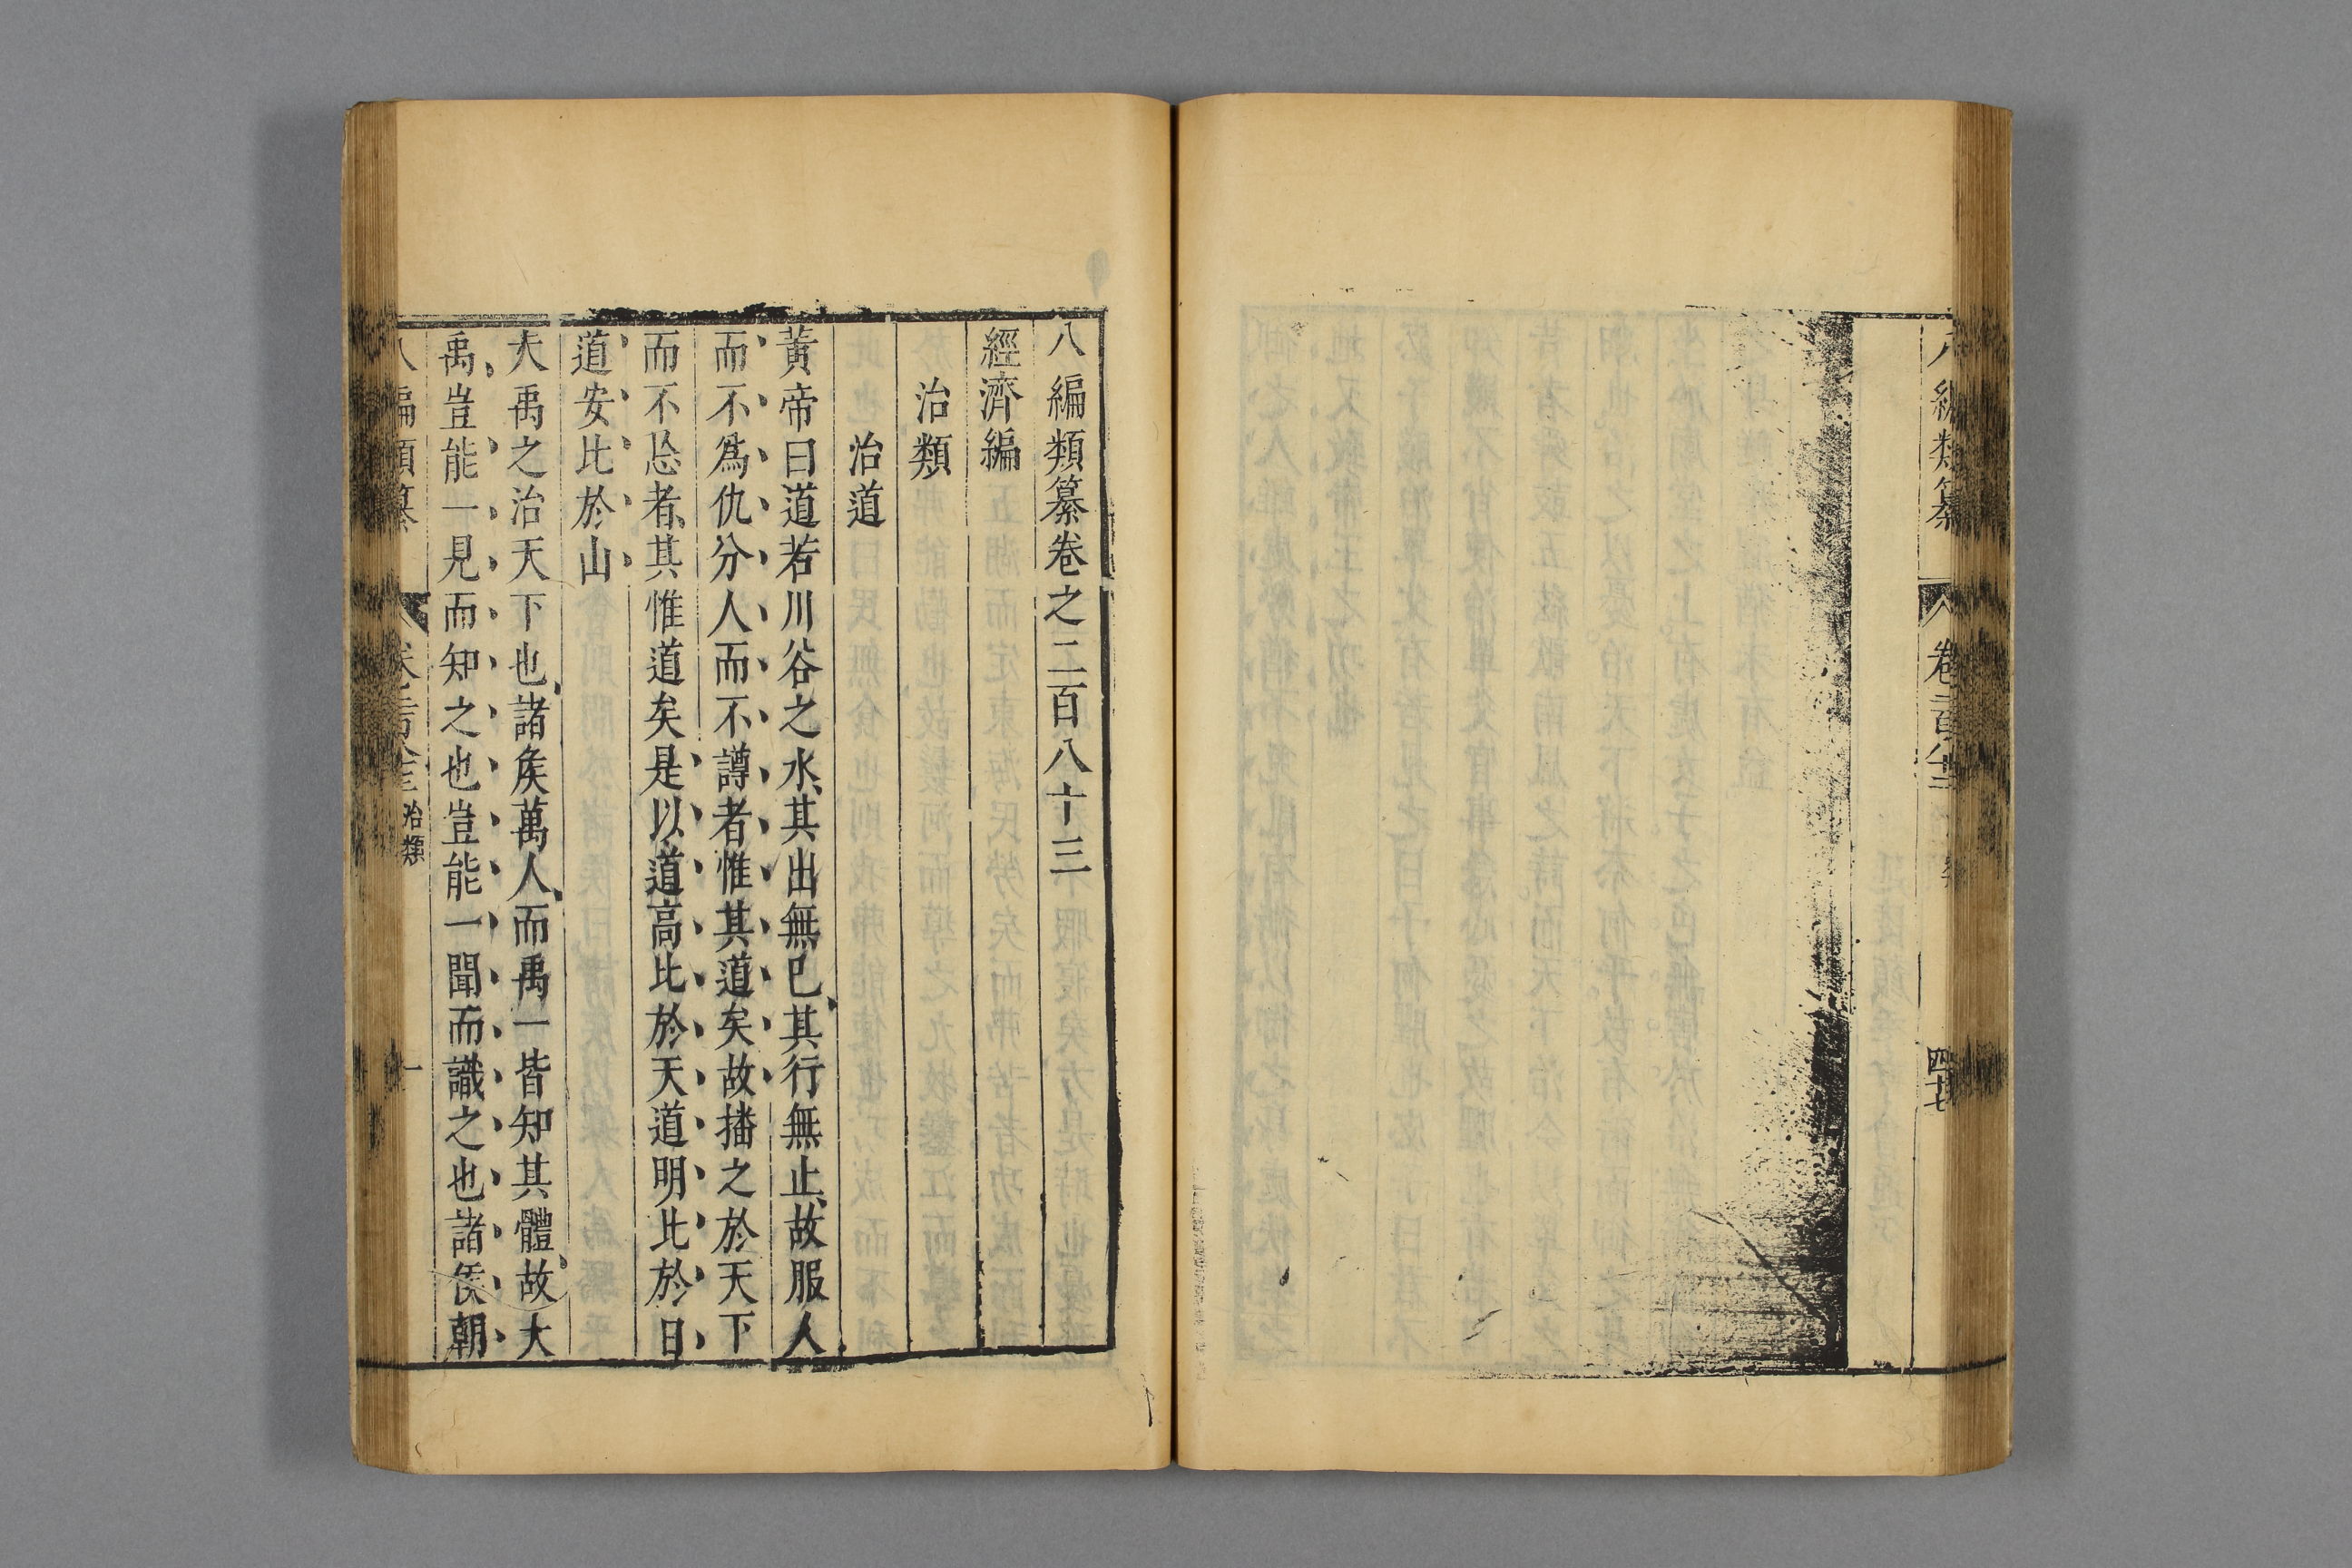 八編類纂
卷二百八十二
四十七
八編類纂卷之二百八十三
經濟編
治類
治道
黃帝曰道若川谷之水其出無已其行無止故服人
而不爲仇分人而不譐者惟其道矣故播之於天下
而不忘者其惟道矣是以道高比於天道明比於日
道安比於山
大禹之治天下也諸矦萬人而禹一皆知其體故大
禹豈能一見而知之也豈能一聞而識之也諸矦朝
八編類纂
治類
一